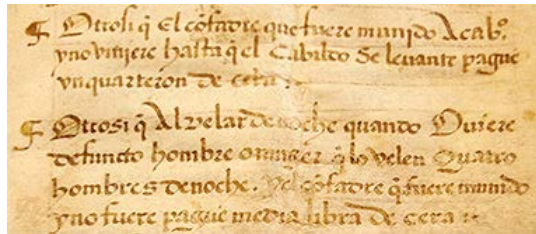 ¶ Otrosi q̃ El cõfadre que fuere munido Acabº.
yno viniere hasta q̃ el Cabildo Se leuante pague
vnquarteron de cera
¶ Otrosi q̃ Alvelar de noche quando Ouiere
defuncto hombre omuger q̃ lo velen Quatro
hombres denoche. Yel cõfadre q̃ fuere munido
yno fuere pague media libra de cera